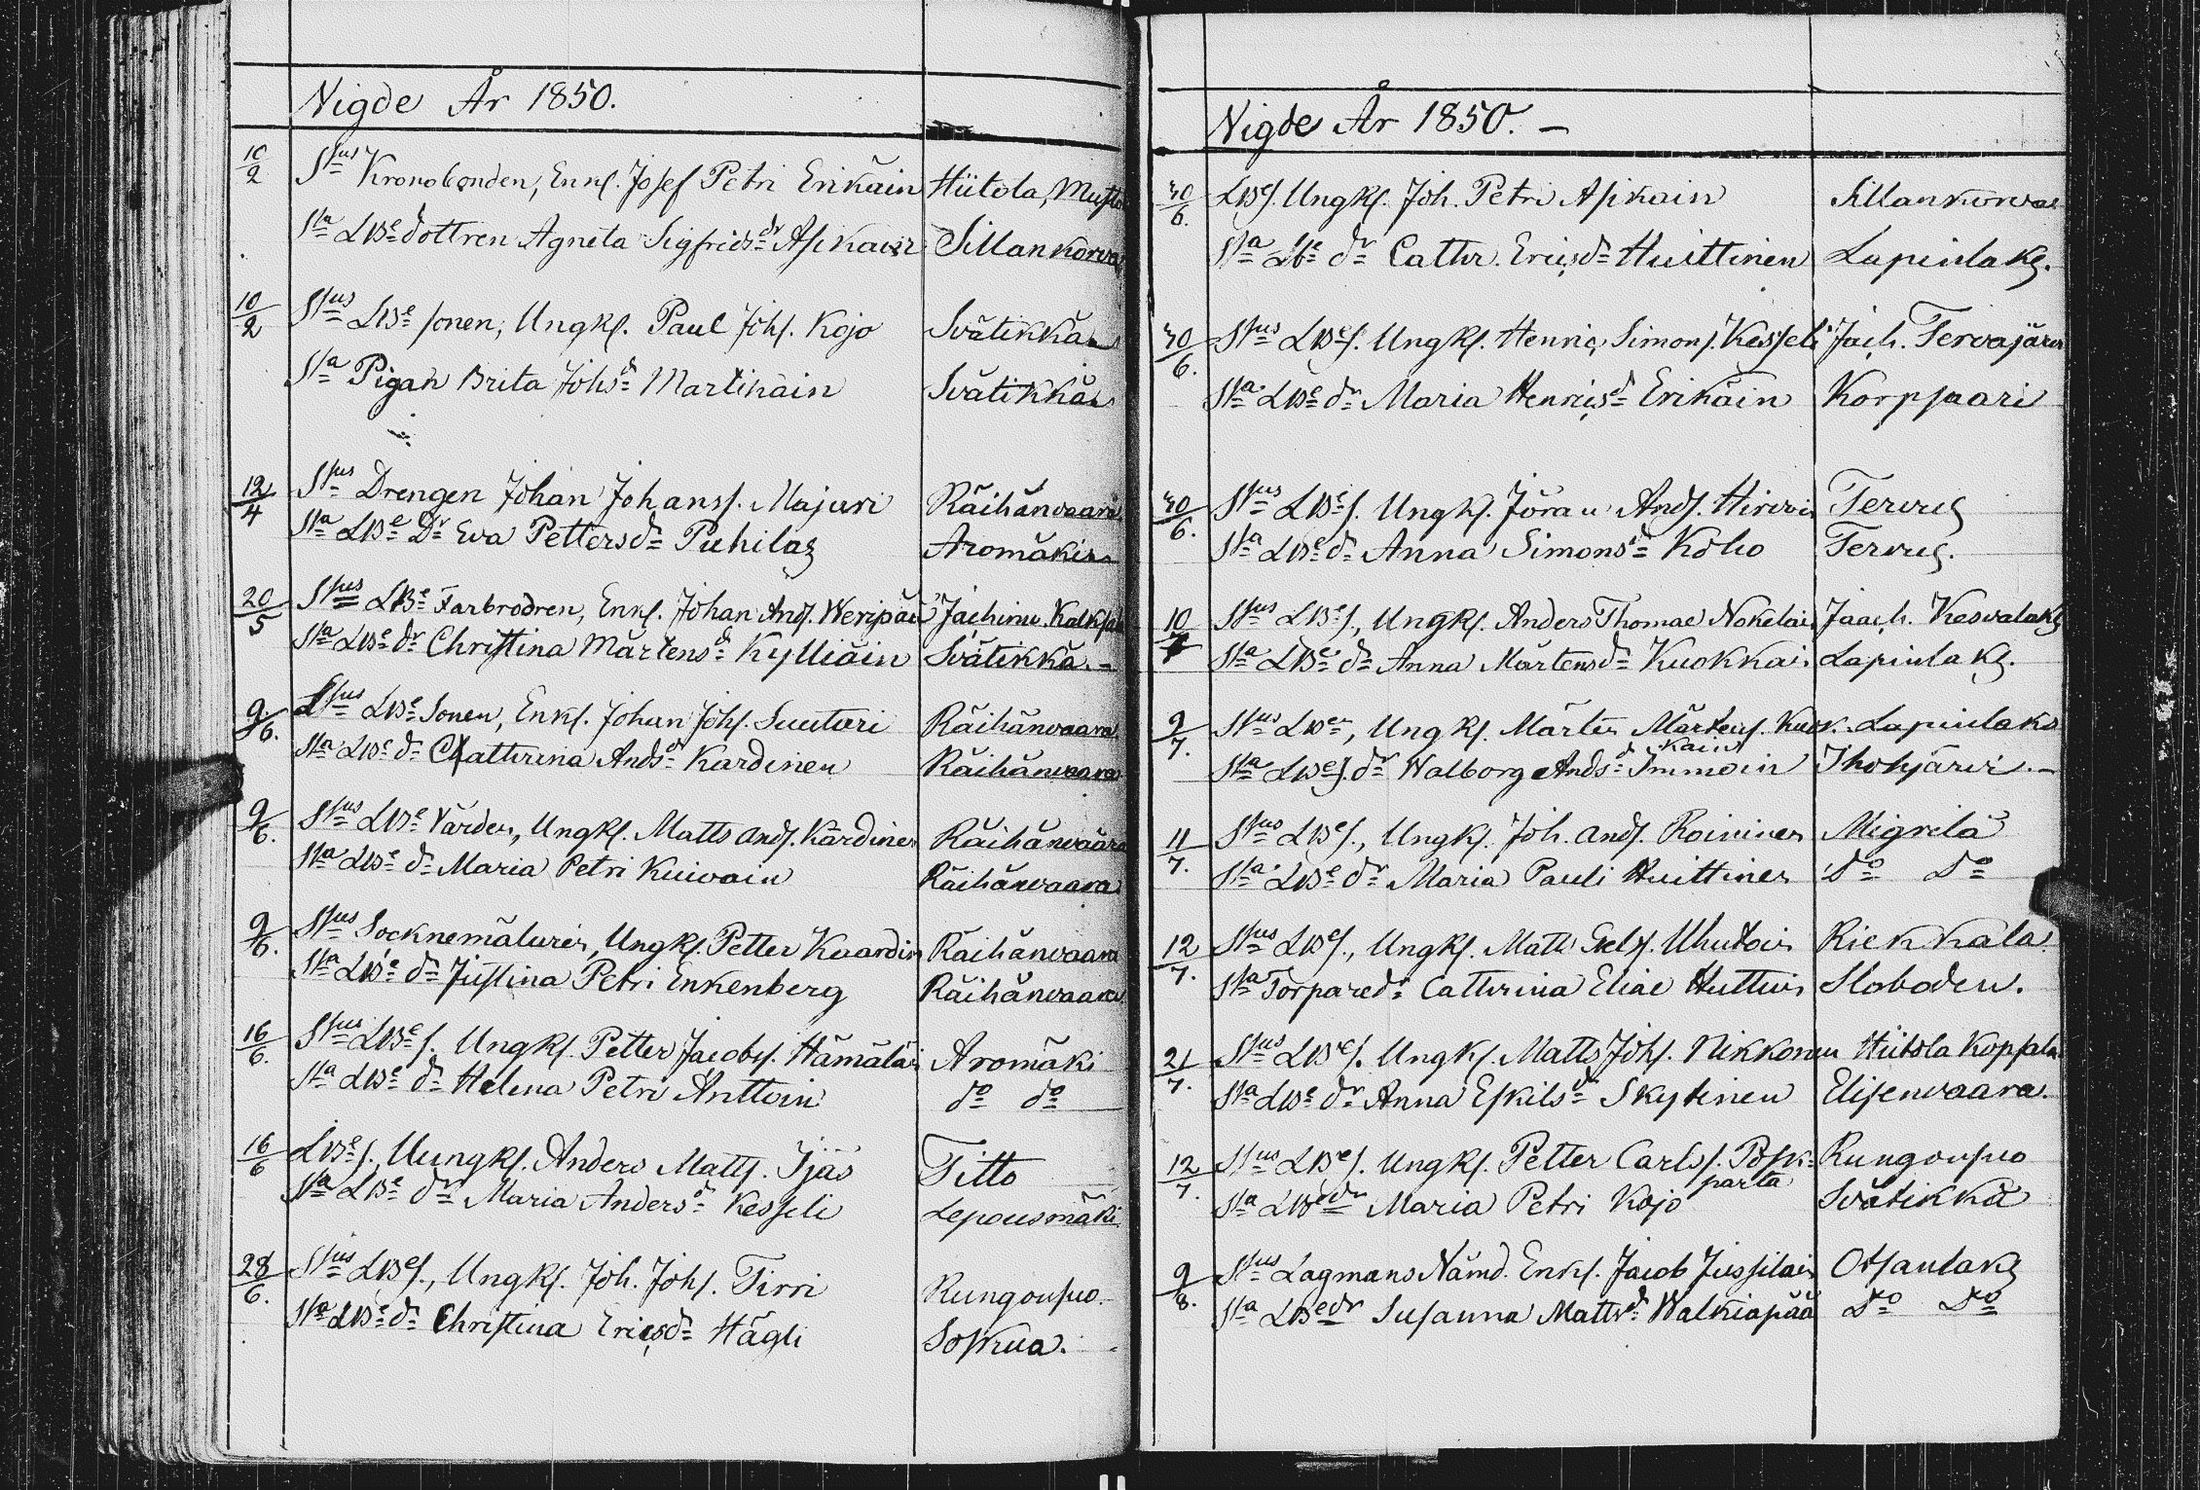 Nigde År 1850.
10/2 Sp:us Kronobonden, Enkl. Josef Petri Erikäin Hiitola, Musto
Sp:a LBe dottren Agneta Sigfrids dr Asikain Sillankorva
10/2 Sp:us LBe sonen, Ungkl. Paul Johs. Kojo Svätikkä
Sp:a Pigan Brita Johs d Martikain Svätikkä
12/4 Sp:us Drengen Johan Johanss. Majuri Räihänvaara
Sp:a LBe Dr Eva Pettersd Puhilas Aromäki
20/5 Sp:us LBe Farbrodren, Enkl. Johan Ands. Weripää Jächinu. Kalksalo
Sp:a LBe dr Christina Mårtens d Kylliäin Svätikkä
9/6. Sp:us LBe Sonen, Enkl. Johan Johs. Suutari Räihänvaara
Sp:a LBe dr Cathrina Ands d Kardinen Räihänvaara
9/6. Sp:us LBe Värden, Ungkl. Matts Ands. Kärdinen Räihänvaara
Sp:a LBe dr Maria Petri Kuivain Räihänvaara
9/6. Sp:us Socknemålaren, Ungkl. Petter Kaardin Räihänvaara
Sp:a LBe dr Justina Petri Enkenberg Räihänvaara
16/6. Sp:us LBe s. Ungkl. Petter Jacobs. Hämäläi Aromäki
Sp:a LBe dr Helena Petri Anttoin do do
16/6 LBe s. Uungkl. Anders Matts. Ijäs Titto
Sp:a LBe dr Maria Anders d Kesseli Lepousmäki
28/6. Sp:us LBe s., Ungkl. Joh. Johs. Tirri Rungousuo.
Sp:a LBe dr Christina Ericsd Hägli Soskua.
Nigde År 1850. –
30/6. LBe s. Ungkl. Joh. Petri Asikain Sillankorva
Sp:a LBe dr Cathr. Ericsd Huittinen Lapinlaks.
30/6. Sp:us LBe s. Ungkl. Henric Simons. Kesseli Jäch. Tervajärvi
Sp:a LBe dr Maria Henrics d Erikäin Korpsaari
30/6. Sp:us LBe s. Ungkl. Jöran Ands. Hirvi Tervus
Sp:a LBe dr Anna Simons d Koho Tervus.
10/7 Sp:us LBe s., Ungkl. Anders Thomae Nokelai Jaach. Kesvalaks
Sp:a LBe dr Anna Mårtensd Kuokkai Lapinlaks.
9/7. Sp:us LBen, Ungkl. Mårten Mårtens. Kuok- Lapinlaks
kain
Sp:a LBe s. dr Walborg Ands d Immoin Ihohjärvi. –
11/7. Sp:us LBe s., Ungkl. Joh. Ands. Roininen Migrelä
Sp:a LBe dr Maria Pauli Huittinen Do Do
12/7. Sp:us LBe s., Ungkl. Matts Uhutoin Riekkala
Sp:a Torpared. Cathrina Eliae Huttui Sloboden.
21/7. Sp:us LBe s. Ungkl. Matts Johs. Nikkonen Hiitola Kopsala
Sp:a LBe dr Anna Eskils d Skytinen Elisenvaara.
12/7. Sp:us LBe s. Ungkl. Petter Carls s. Posk- Rungousuo
parta
Sp:a LBe dr Maria Petri Kojo Svätikkä
9/8. Sp:us Lagmans Nämd. Enkl. Jacob Jussilain Otsanlaks
Sp:a LBe dr Susanna Matts d Walkiapää Do Do